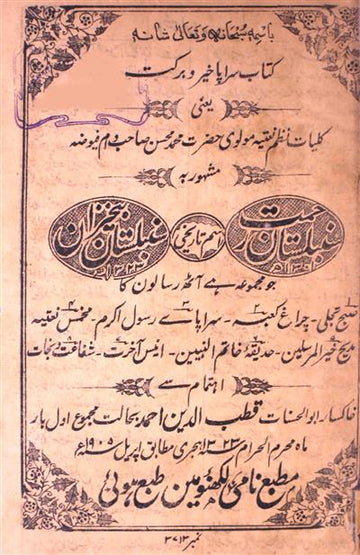 باسمہ سبحانہ و تعالیٰ شانہ
کتاب سراپا خیر و برکت
یعنی
کلیات نظم نعتیہ مولوی حضرت محمد محسن صاحب دام فیوضہ
مشہور بہ
نبلستان رحمت ۱۳۰۱ھ
اسم تاریخی
۱۳۲۲ھ
جو مجموعہ ہے آٹھ رسالوں کا
صبح تجلی - چراغ کعبہ - سراپاے رسول اکرم - مخمس نعتیہ
مدیح خیر المرسلین - حدیقۂ خاتم النبیین - انیس آخرت - شفاعت و نجات
اہتمام سے
خاکسار ابو الحسنات قطب الدین احمد بحالت مجموع اول بار
ماہ محرم الحرام ۱۳۲۳ ہجری مطابق اپریل ۱۹۰۵ء
مطبع نامی لکھنؤ میں طبع ہوئی
نمبر ۳۷۱۲